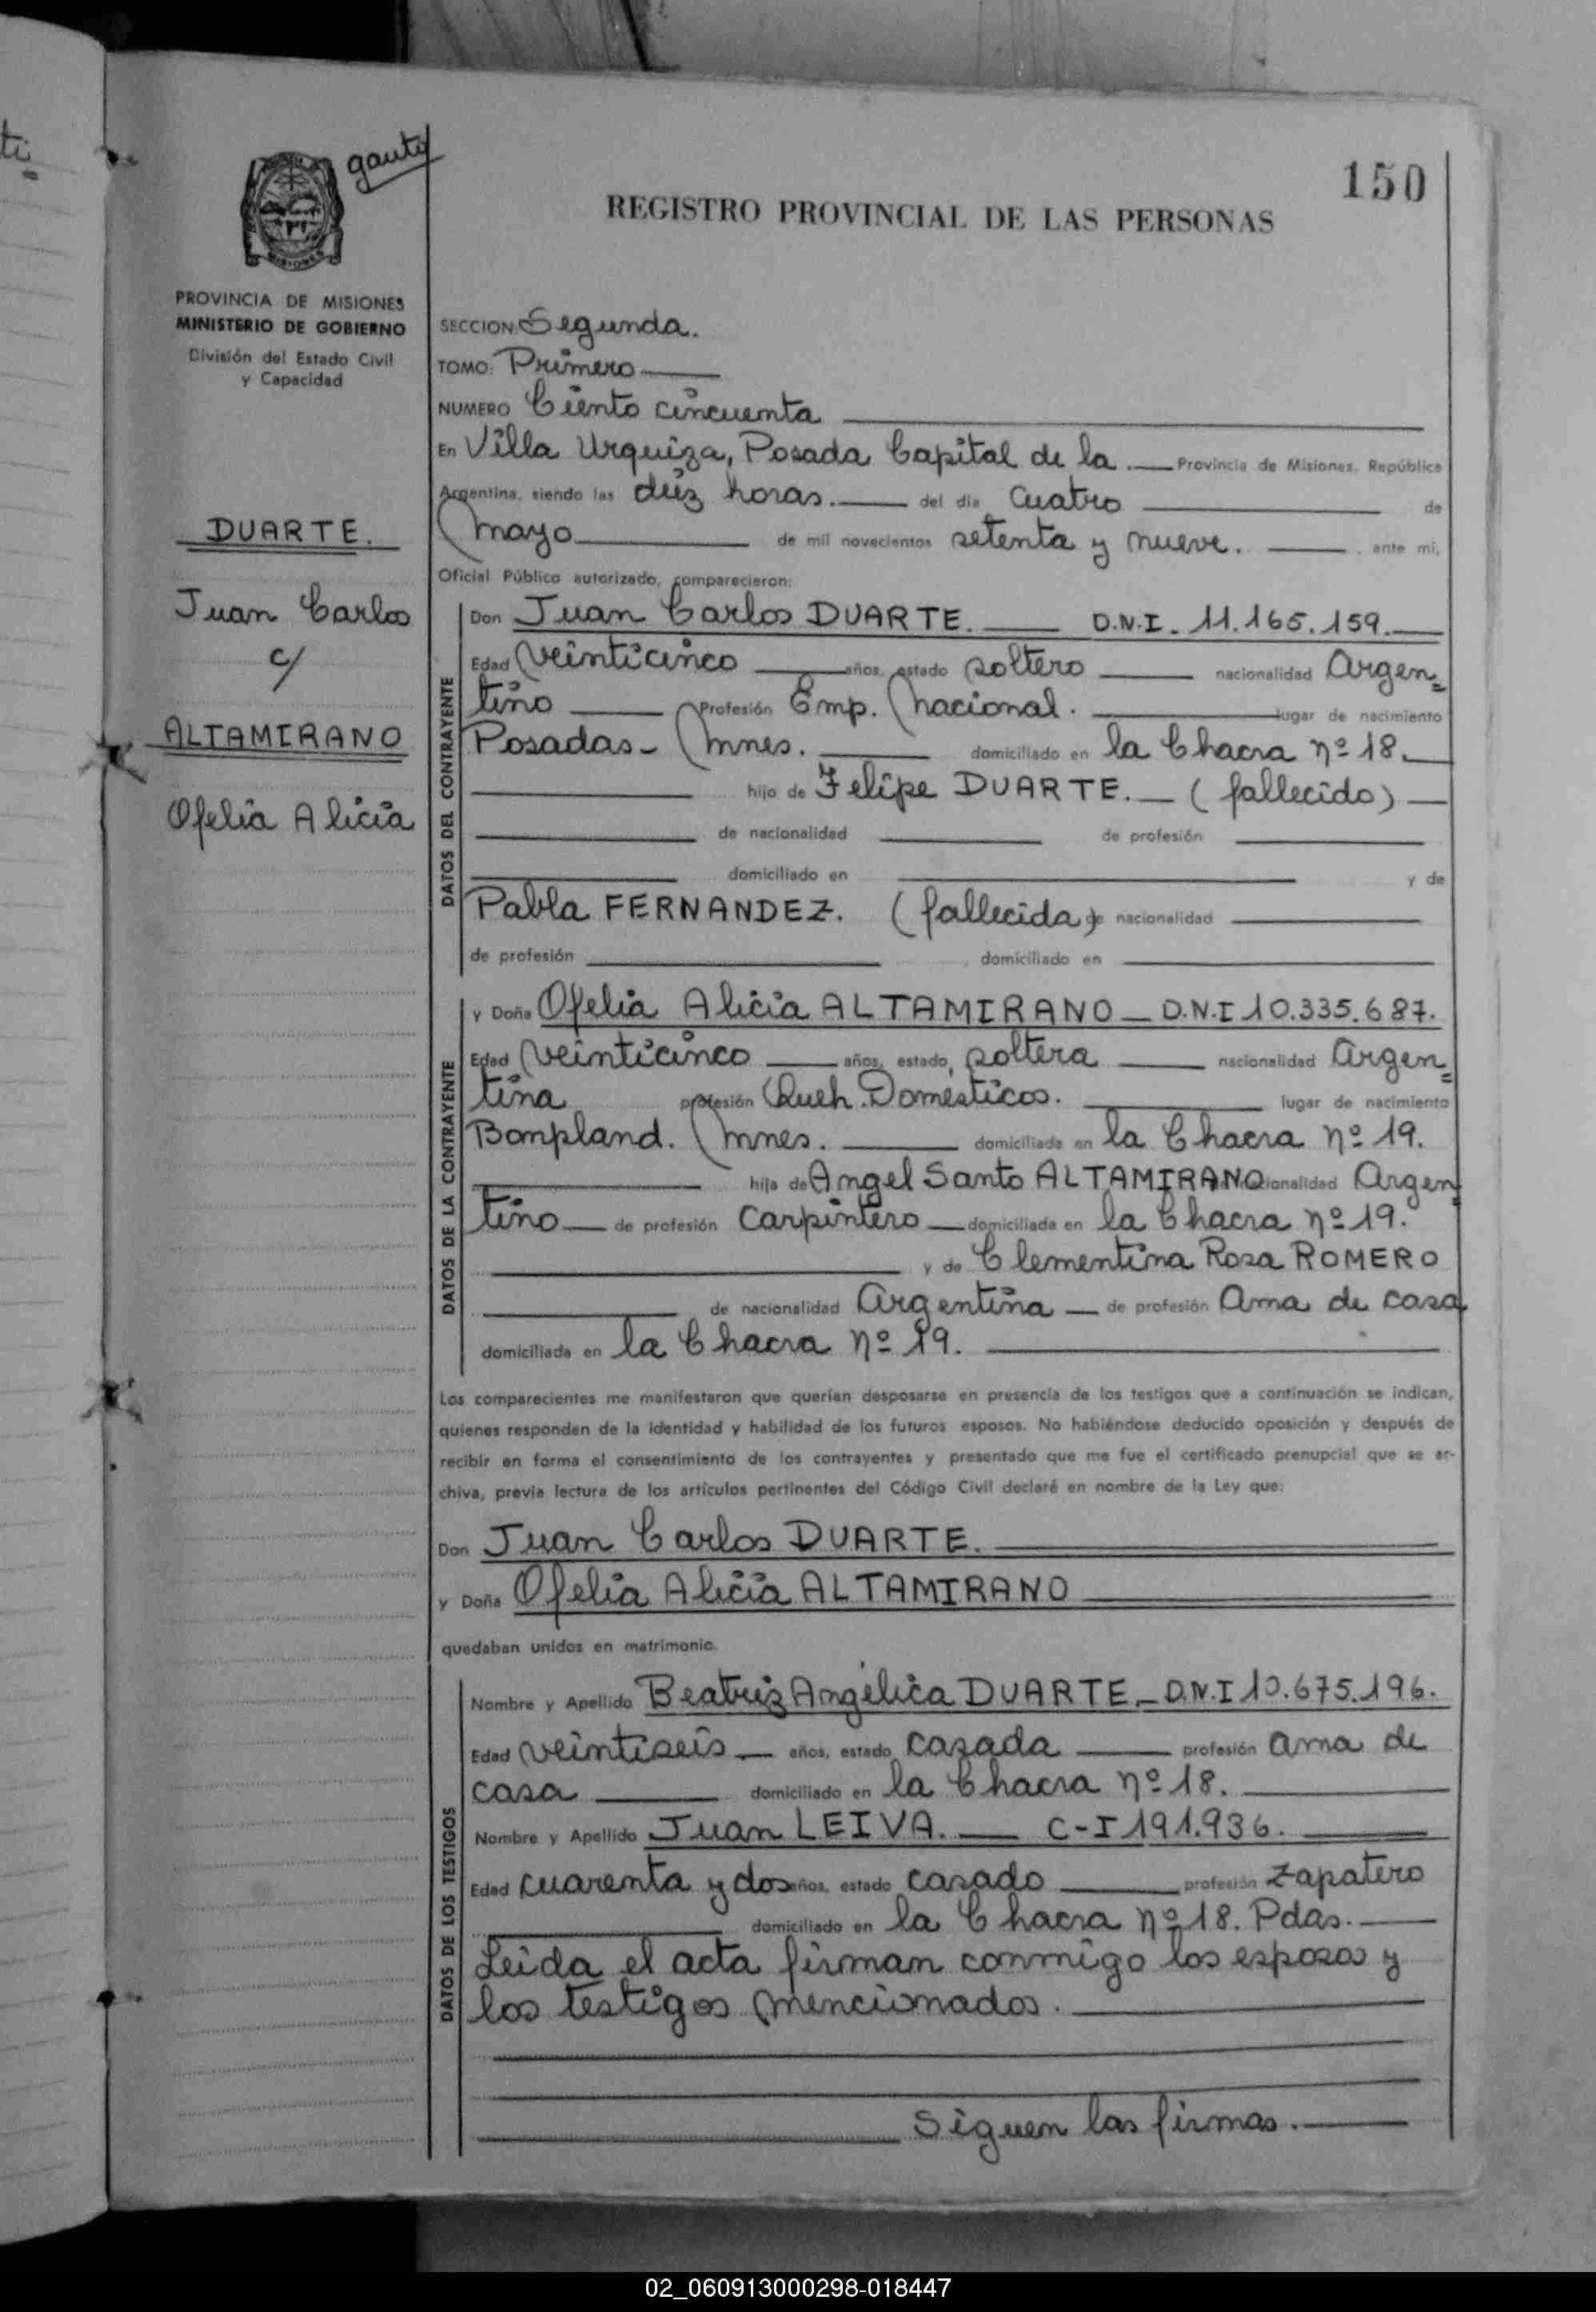 ti
gauty
150
REGISTRO PROVINCIAL DE LAS PERSONAS
MISIONES
PROVINCIA DE MISIONES
MINISTERIO DE GOBIERNO
División del Estado Civil
y Capacidad
DUARTE.
Juan Carlos
c/
ALTAMIRANO
Ofelia Alicia
SECCION: Segunda.
TOMO: Primero
NUMERO Ciento cincuenta
En Villa Urquiza, Posada Capital de la Provincia de Misiones, República
Argentina, siendo las diéz horas. del día cuatro de
mayo de mil novecientos setenta y nueve. , ante mi,
Oficial Público autorizado, comparecieron:
DATOS DEL CONTRAYENTE
Don Juan Carlos DUARTE. D.N.I. 11.165.159.
Edad veinticinco años, estado soltero nacionalidad Argen=
tino Profesión Emp. nacional. lugar de nacimiento
Posadas- mnes. domiciliado en la Chacra nº 18.
hijo de Felipe DUARTE. (fallecido)
de nacionalidad de profesión
domiciliado en y de
Pabla FERNANDEZ. (fallecida) de nacionalidad
de profesión domiciliado en
DATOS DE LA CONTRAYENTE
y Doña Ofelia Alicia ALTAMIRANO D.N.I 10.335.687.
Edad veinticinco años, estado, soltera nacionalidad Argen=
tina profesión Queh. Domésticos. lugar de nacimiento
Bompland. mnes. domiciliada en la Chacra nº 19.
hija de Angel Santo ALTAMIRANO nacionalidad Argen=
tino de profesión Carpintero domiciliada en la Chacra nº 19.
y de Clementina Rosa ROMERO
de nacionalidad Argentina de profesión Ama de casa
domiciliada en la Chacra nº 19.
Los comparecientes me manifestaron que querían desposarse en presencia de los testigos que a continuación se indican,
quienes responden de la identidad y habilidad de los futuros esposos. No habiéndose deducido oposición y después de
recibir en forma el consentimiento de los contrayentes y presentado que me fue el certificado prenupcial que se ar-
chiva, previa lectura de los artículos pertinentes del Código Civil declaré en nombre de la Ley que:
Don Juan Carlos DUARTE.
y Doña Ofelia Alicia ALTAMIRANO
quedaban unidos en matrimonio.
DATOS DE LOS TESTIGOS
Nombre y Apellido Beatriz Angélica DUARTE. D.N.I 10.675.196.
Edad veintiseis años, estado casada profesión ama de
casa domiciliado en la Chacra nº 18.
Nombre y Apellido Juan LEIVA. C-I 191.936.
Edad cuarenta y dos años, estado casado profesión zapatero
domiciliado en la Chacra nº 18. Pdas.
Leida el acta firman conmigo los esposos y
los testigos mencionados.
Siguen las firmas.
02_060913000298-018447